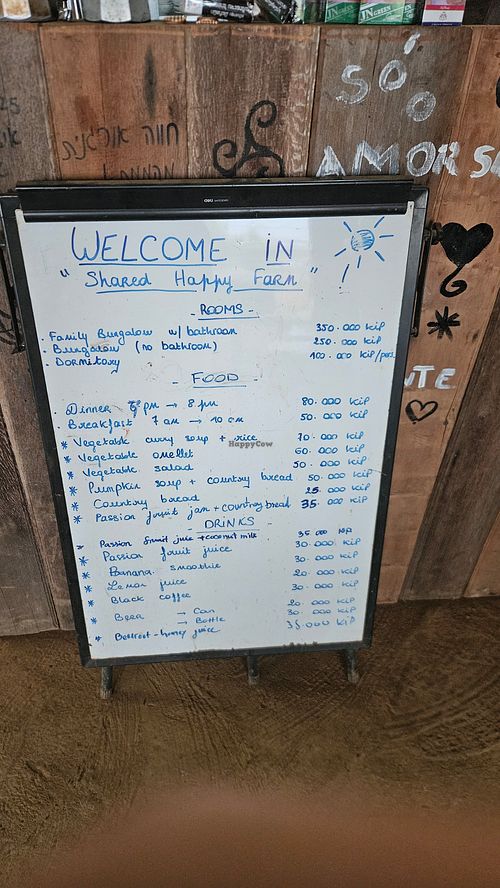 SÓ
O
חווה אורגאנית
AMOR
deli
WELCOME IN
"Shared Happy Farm"
- ROOMS -
. Family Bungalow w/ bathroom 350.000 KIP
. Bungalow (no bathroom) 250.000 KIP
. Dormitory 100.000 KIP/pers
- FOOD -
. Dinner 6 pm → 8 pm 80.000 KIP
. Breakfast 7 am → 10 am 50.000 KIP
* Vegetable curry soup + rice 70.000 KIP
* Vegetable omellet 60.000 KIP
* Vegetable salad 50.000 KIP
* Pumpkin soup + country bread 50.000 KIP
* Country bread 25.000 KIP
* Passion fruit jam + country bread 35.000 KIP
- DRINKS -
* Passion fruit juice + coconut milk 35.000 KIP
* Passion fruit juice 30.000 KIP
* Banana smoothie 30.000 KIP
* Lemon juice 20.000 KIP
* Black coffee 30.000 KIP
* Beer → Can 20.000 KIP
→ Bottle 30.000 KIP
* Beetroot-honey juice 35.000 KIP
HappyCow